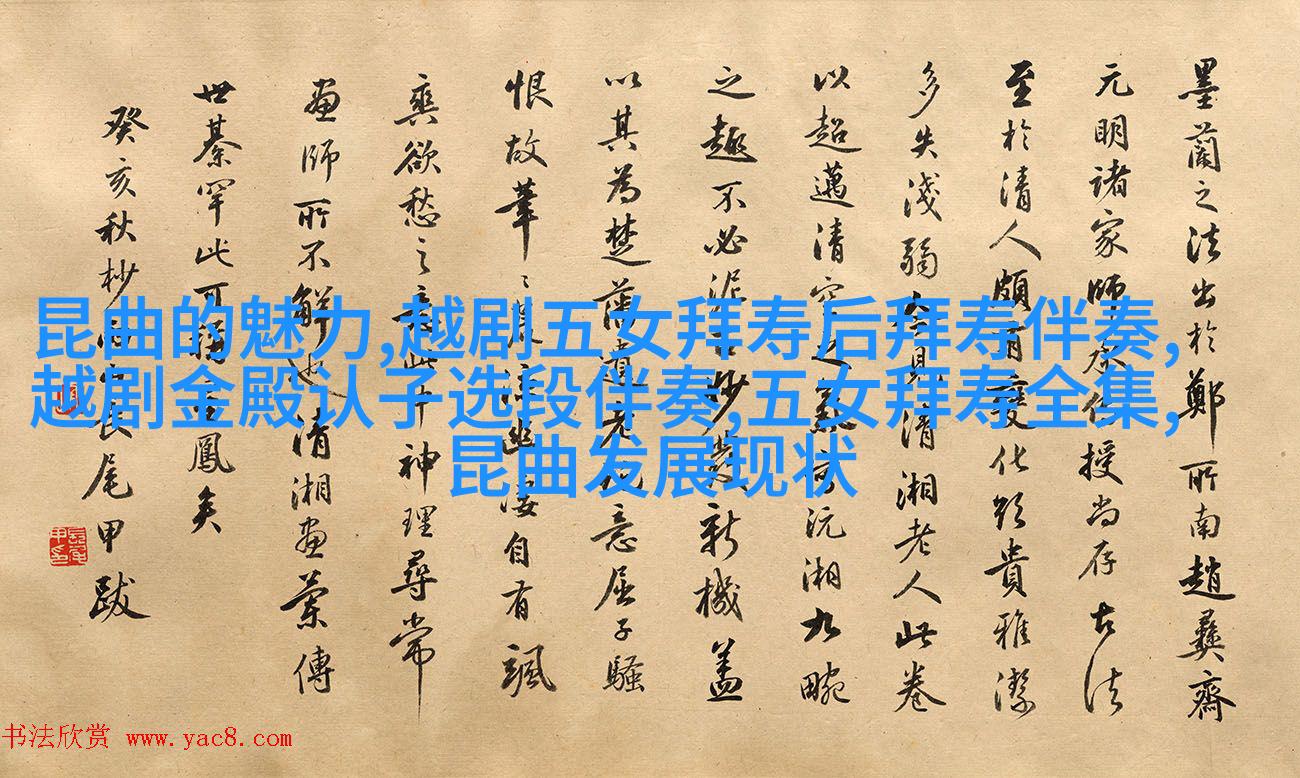 墨蘭之法出於鄭所南趙彝齋
元明諸家師友傳授尚存古法
至於清人頗有變化非貴雅潔
多失淺弱
清湘老人此卷
以超邁清空之
沅湘九畹
之趣不必泥古
新機蓋
以其為楚藩遺
意屈子騷
恨故筆
自有颯
爽欲愁之意此中神理尋常
畫師所不解也清湘畫蘭傳
世綦罕此可稱
鳳矣
癸亥秋杪
尾甲跋
昆曲的魅力,越剧五女拜寿后拜寿伴奏,
越剧金殿认子选段伴奏,五女拜寿全集,
昆曲发展现状
书法欣赏 www.yac8.com